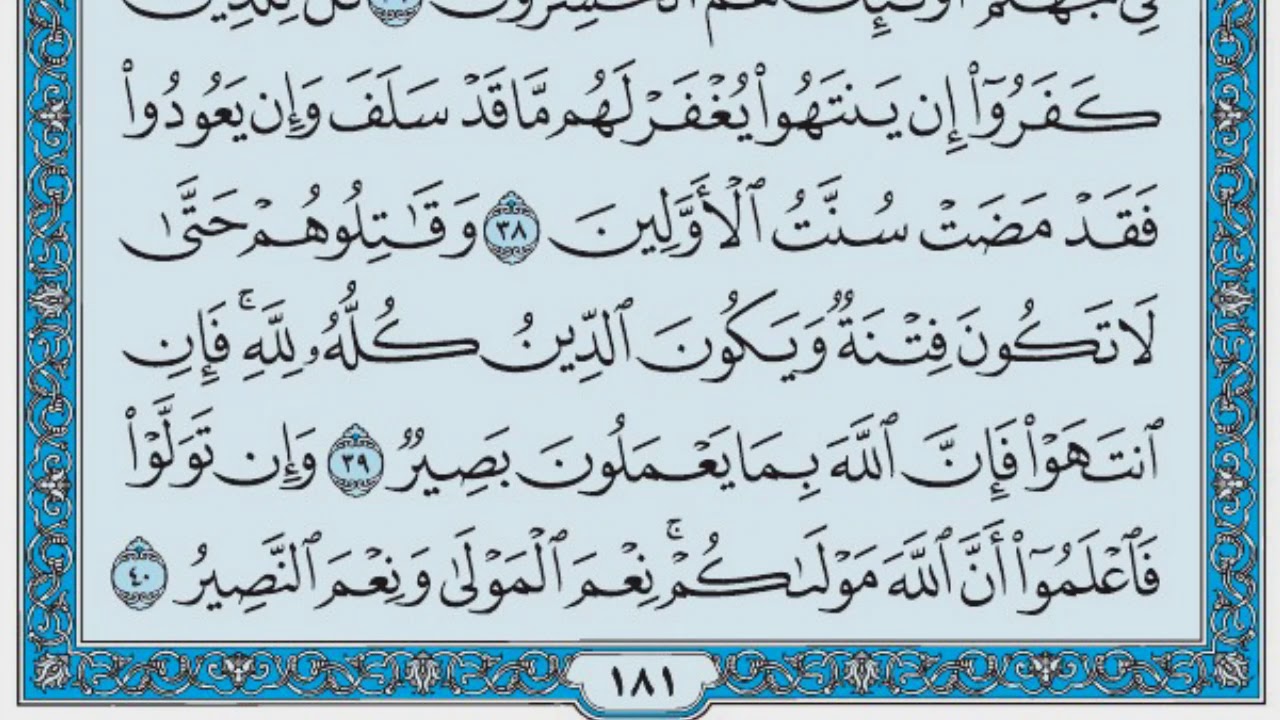 فِي جَهَنَّمَ أُوْلَٰٓئِكَ هُمُ ٱلۡخَٰسِرُونَ ٣٧ قُل لِّلَّذِينَ
كَفَرُوٓاْ إِن يَنتَهُواْ يُغۡفَرۡ لَهُم مَّا قَدۡ سَلَفَ وَإِن يَعُودُواْ
فَقَدۡ مَضَتۡ سُنَّتُ ٱلۡأَوَّلِينَ ٣٨ وَقَٰتِلُوهُمۡ حَتَّىٰ
لَا تَكُونَ فِتۡنَةٞ وَيَكُونَ ٱلدِّينُ كُلُّهُۥ لِلَّهِۚ فَإِنِ
ٱنتَهَوۡاْ فَإِنَّ ٱللَّهَ بِمَا يَعۡمَلُونَ بَصِيرٞ ٣٩ وَإِن تَوَلَّوۡاْ
فَٱعۡلَمُوٓاْ أَنَّ ٱللَّهَ مَوۡلَىٰكُمۡۚ نِعۡمَ ٱلۡمَوۡلَىٰ وَنِعۡمَ ٱلنَّصِيرُ ٤٠
١٨١